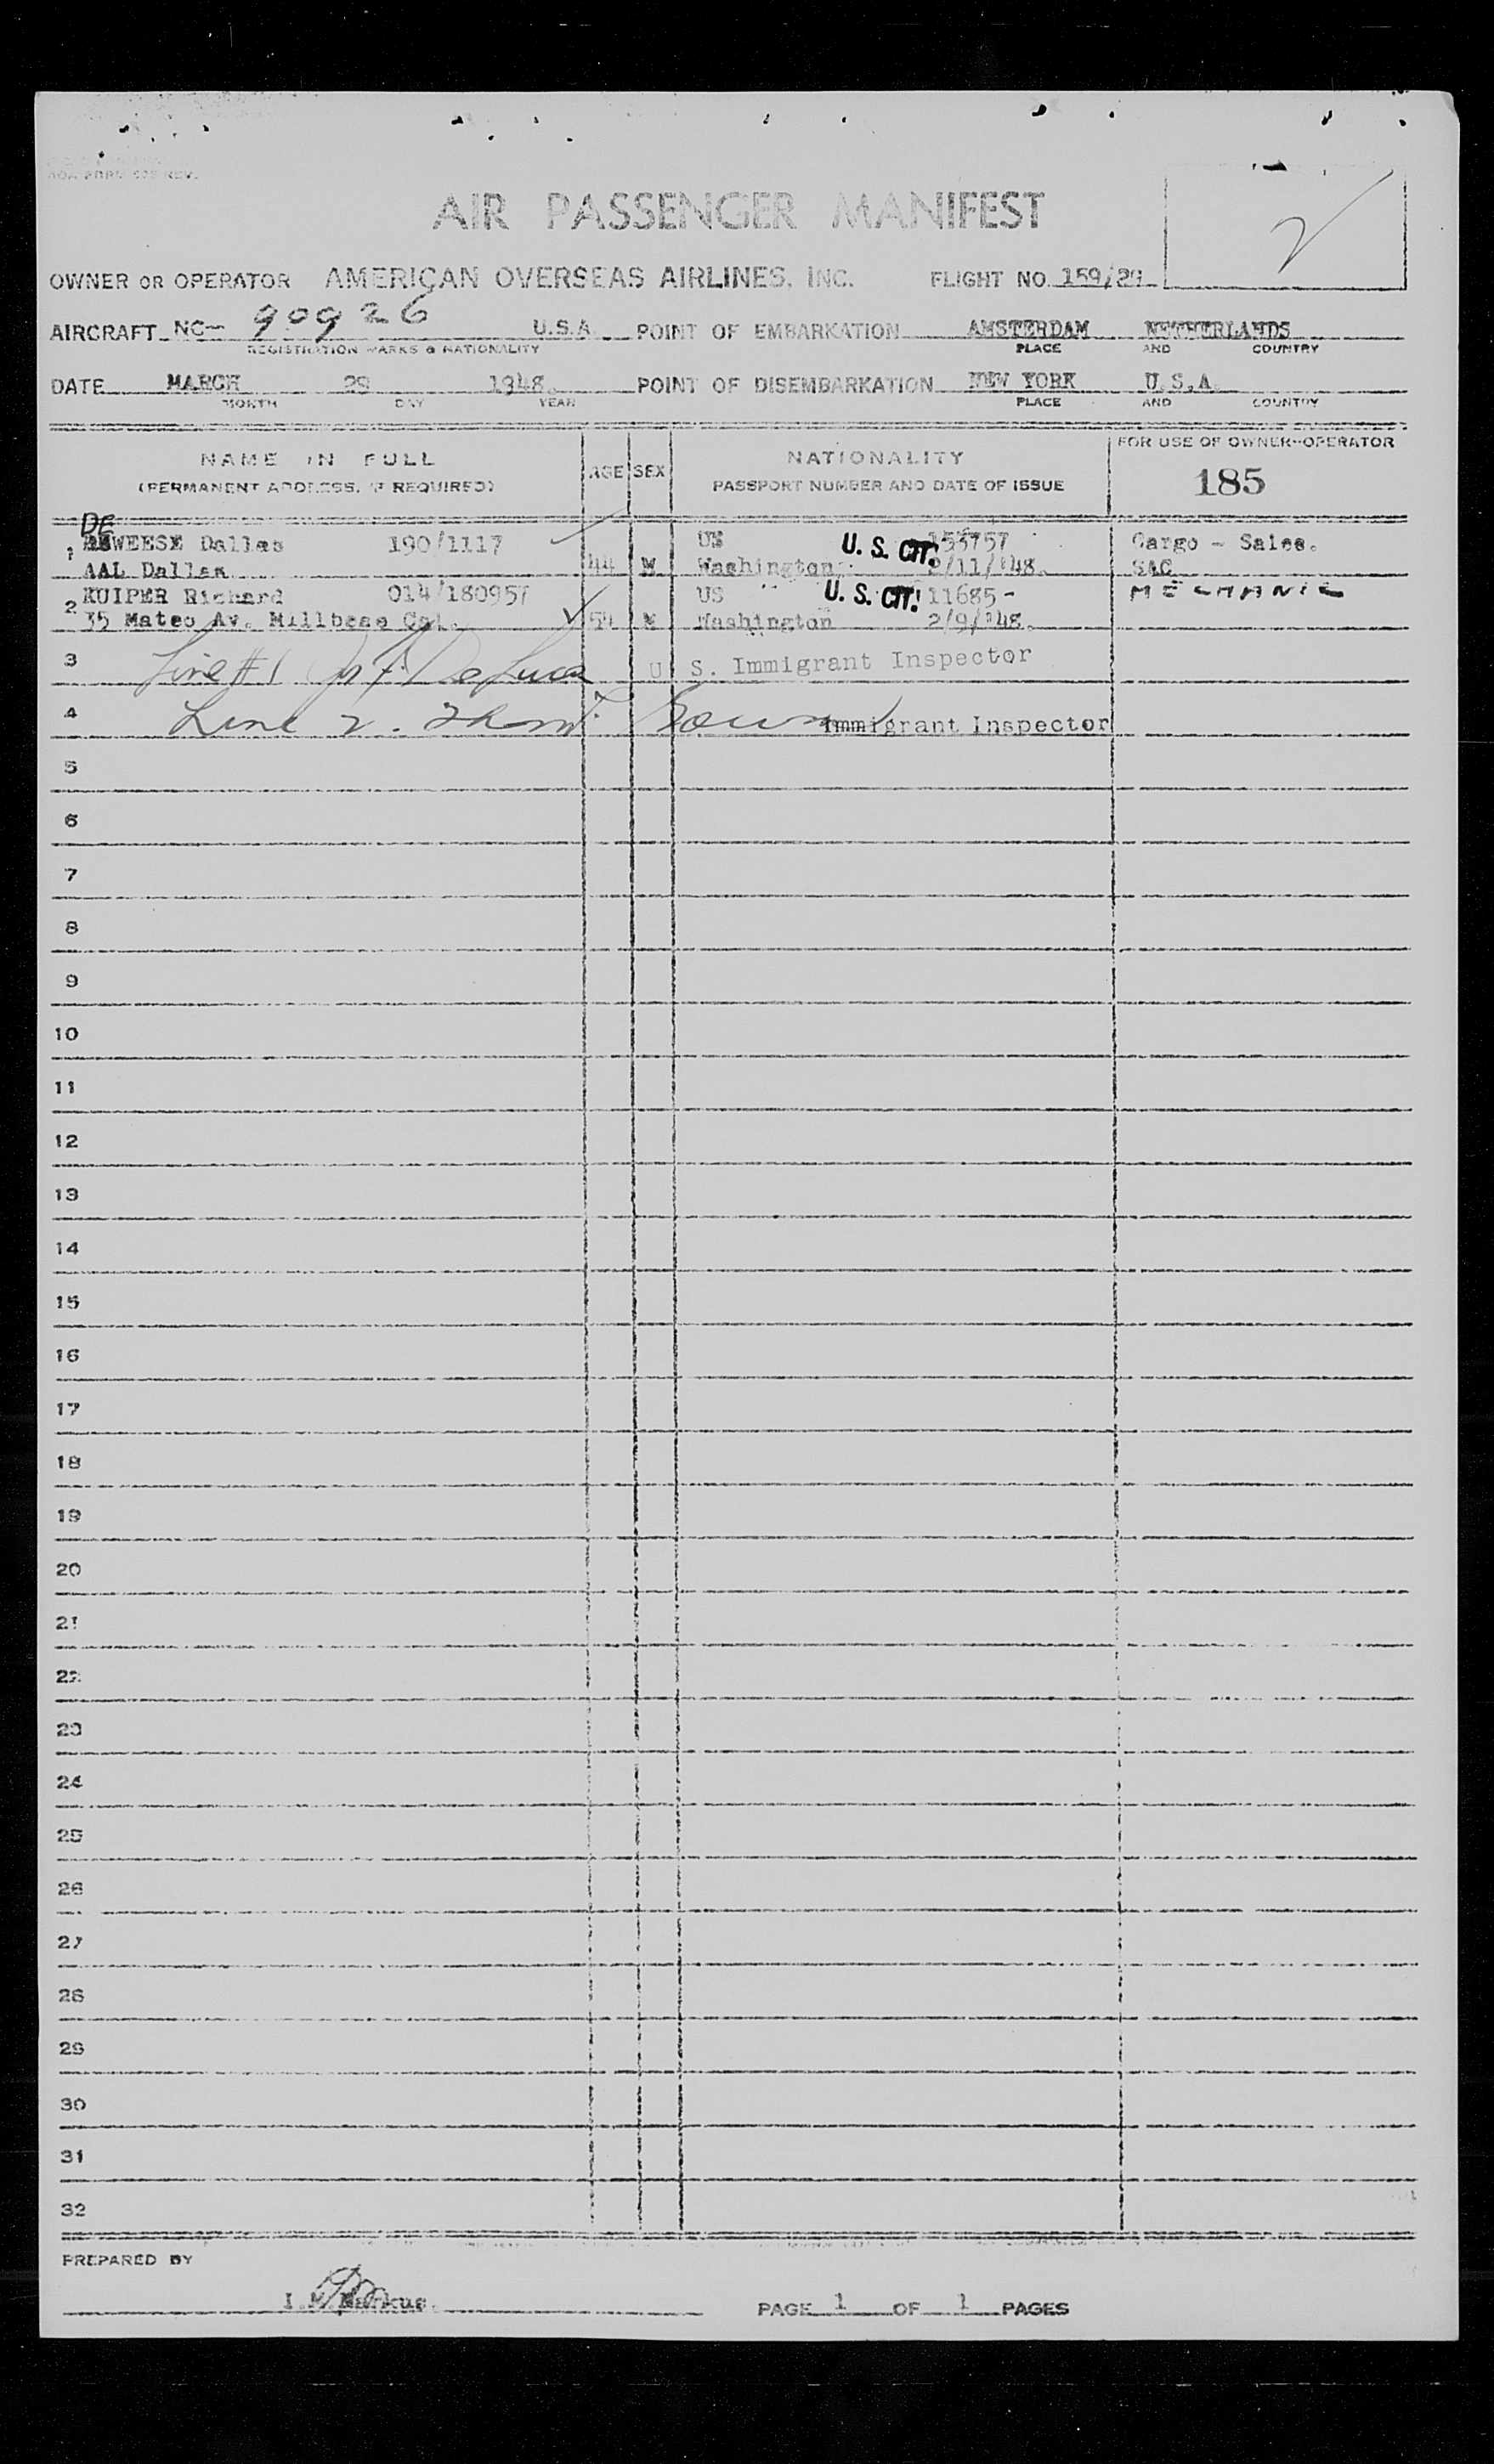 AIR PASSENGER MANIFEST
OWNER OR OPERATOR AMERICAN OVERSEAS AIRLINES, INC. FLIGHT NO. 159/29
AIRCRAFT NC- 90926 U.S.A. POINT OF EMBARKATION AMSTERDAM NETHERLANDS
REGISTRATION MARKS & NATIONALITY PLACE AND COUNTRY
DATE MARCH 29 1948. POINT OF DISEMBARKATION NEW YORK U.S.A.
MONTH DAY YEAR PLACE AND COUNTRY
NAME IN FULL AGE SEX NATIONALITY FOR USE OF OWNER-OPERATOR
(PERMANENT ADDRESS, IF REQUIRED) PASSPORT NUMBER AND DATE OF ISSUE 185
DE
1 WEESE Dallas 190/1117 US U. S. CIT. 153757 Cargo - Sales.
AAL Dallas 44 M Washington /11/'48. SAC
2 KUIPER Richard 014/180957 US U. S. CIT! 11685- MECHANIC
35 Mateo Av. Millbrae Cal. 54 M Washington 2/9/'48.
3 Line #1 DeLuca U S. Immigrant Inspector
4 Line 2. Immigrant Inspector
5
6
7
8
9
10
11
12
13
14
15
16
17
18
19
20
21
22
23
24
25
26
27
28
29
30
31
32
PREPARED BY
I. Markus. PAGE 1 OF 1 PAGES